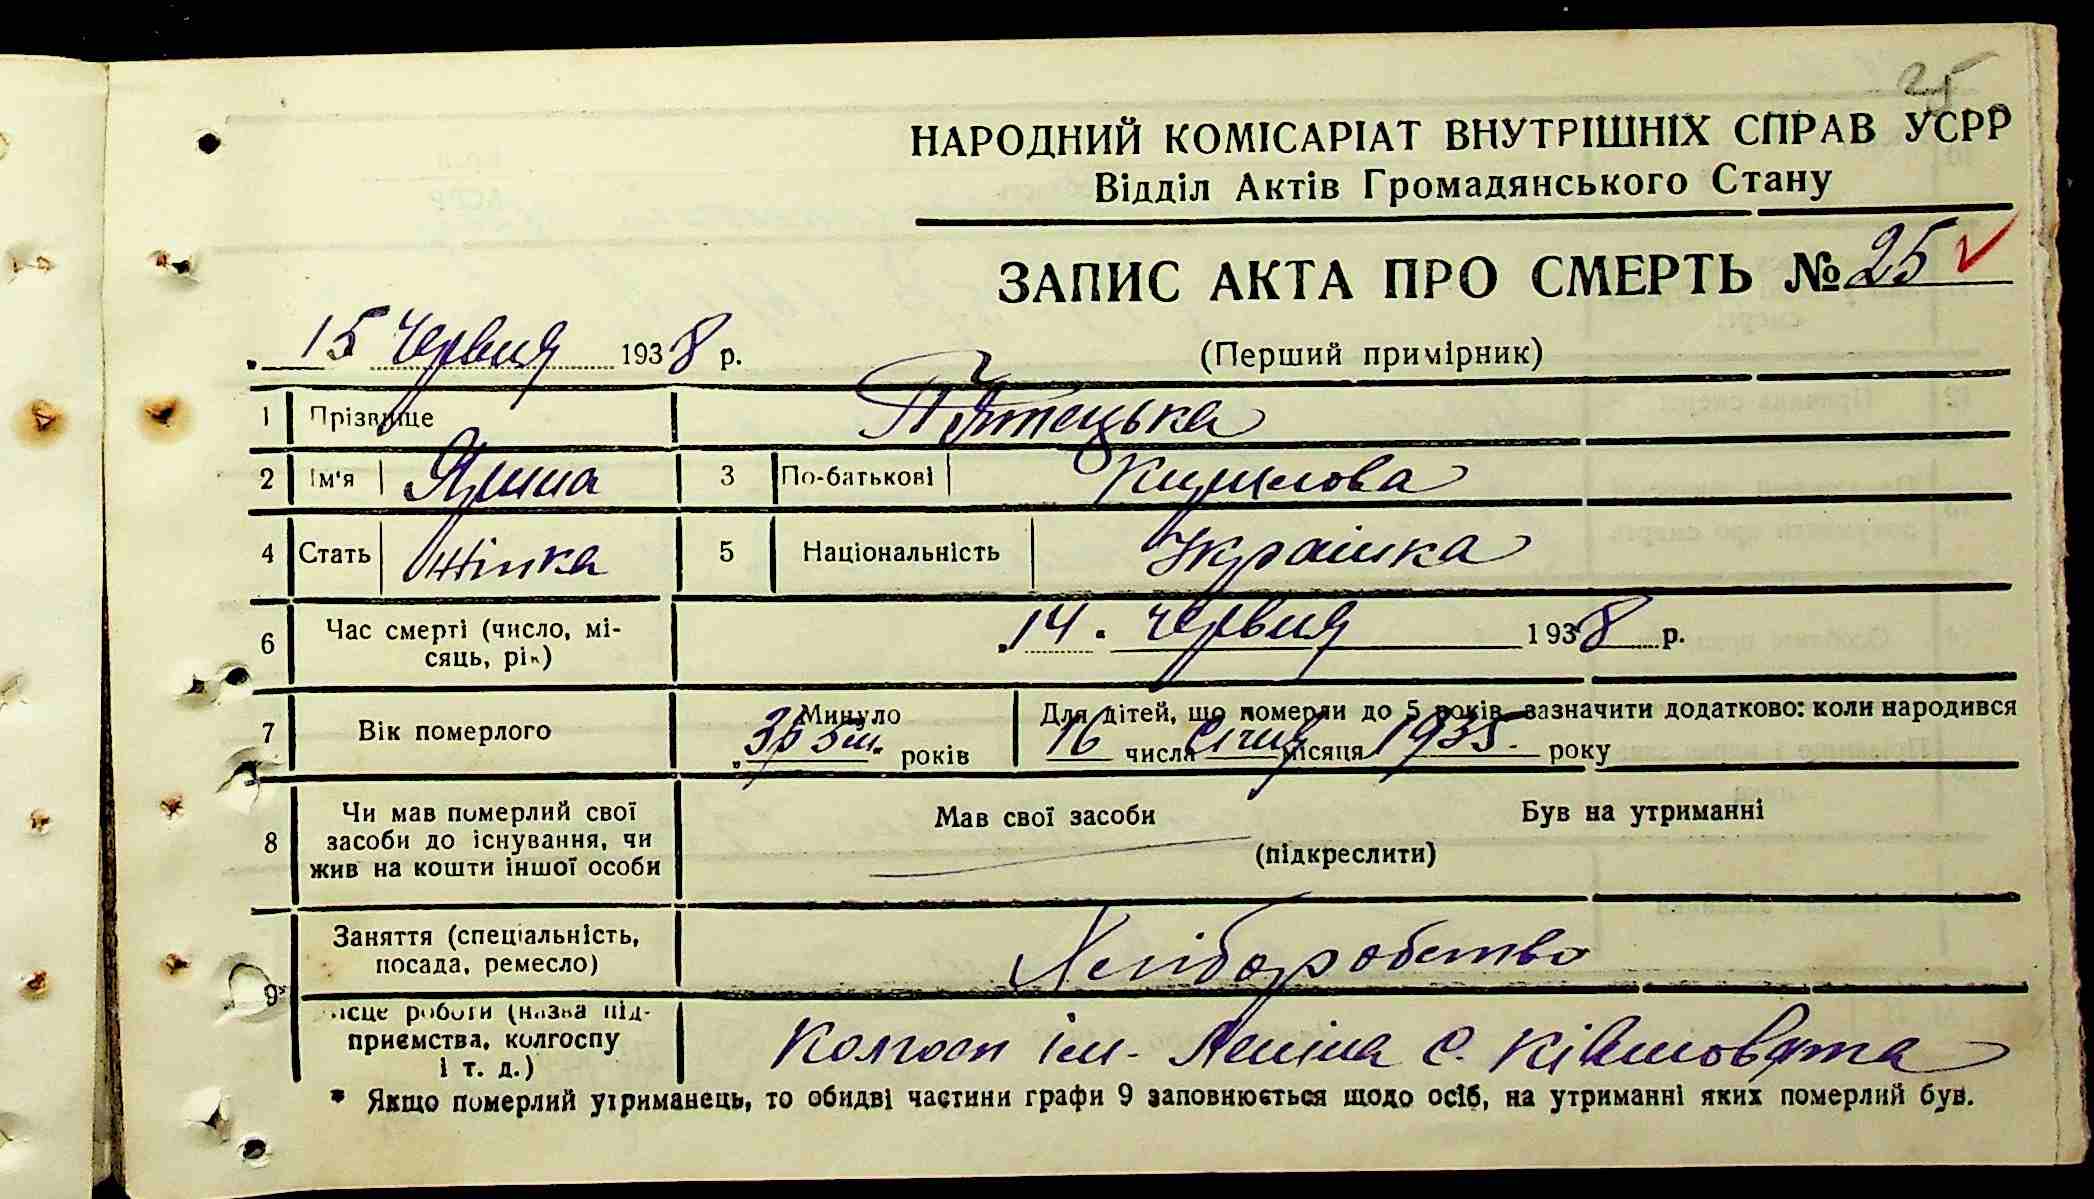 25
НАРОДНИЙ КОМІСАРІАТ ВНУТРІШНІХ СПРАВ УСРР
Відділ Актів Громадянського Стану
ЗАПИС АКТА ПРО СМЕРТЬ № 25
15 червня 1938 р.
(Перший примірник)
1 Прізвище П'ятецька
2 Ім'я Ярина 3 По-батькові
4 Стать Жінка 5 Національність Українка
6 Час смерті (число, мі-
сяць, рік) „14. червня 1938 р.
7 Вік померлого Минуло „3р 5 м." років Для дітей, що померли до 5 років, зазначити додатково: коли народився
16 числа січня місяця 1935. року
8 Чи мав померлий свої
засоби до існування, чи
жив на кошти іншої особи
Мав свої засоби Був на утриманні
(підкреслити)
9* Заняття (спеціальність,
посада, ремесло) Хліборобство
ісце роботи (назва під-
приємства, колгоспу
і т. д.) Колгосп ім. Леніна с. Ківшовата
* Якщо померлий утриманець, то обидві частини графи 9 заповнюється щодо осіб, на утриманні яких померлий був.